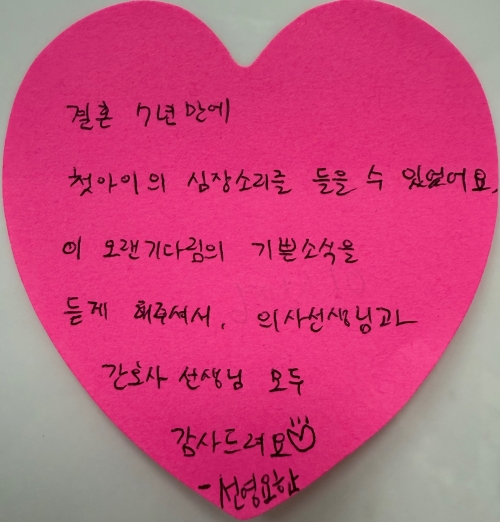 결혼 7년만에
첫아이의 심장소리를 들을 수 있었어요.
이 오랜기다림의 기쁜소식을
듣게 해주셔서, 의사선생님과
간호사 선생님 모두
감사드려요
- 선영요한